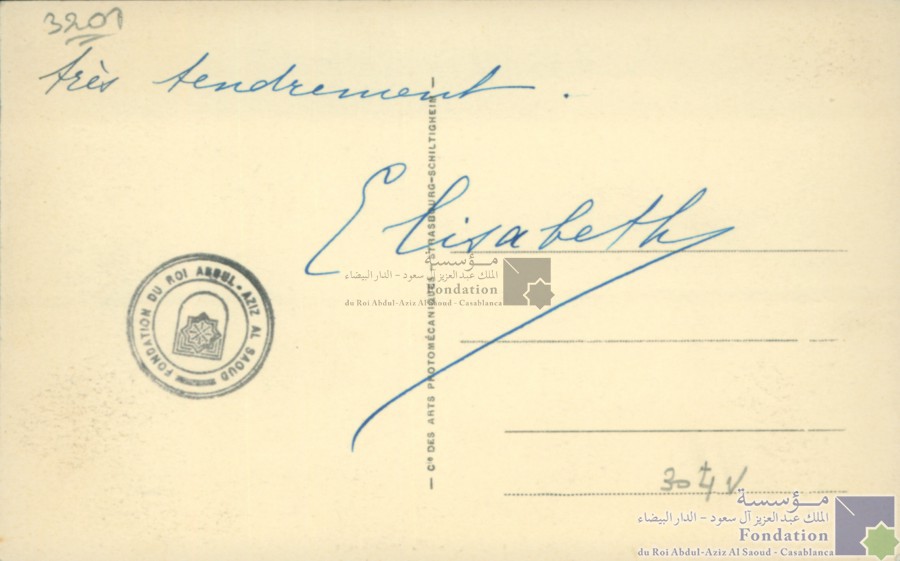 3201
très tendrement.
Elisabeth
— Cie DES ARTS PHOTOMÉCANIQUES - STRASBOURG-SCHILTIGHEIM —
FONDATION DU ROI ABDUL-AZIZ AL SAOUD
مؤسسة
الملك عبدالعزيز آل سعود - الدار البيضاء
Fondation
du Roi Abdul-Aziz Al Saoud - Casablanca
مؤسسة
الملك عبدالعزيز آل سعود - الدار البيضاء
Fondation
du Roi Abdul-Aziz Al Saoud - Casablanca